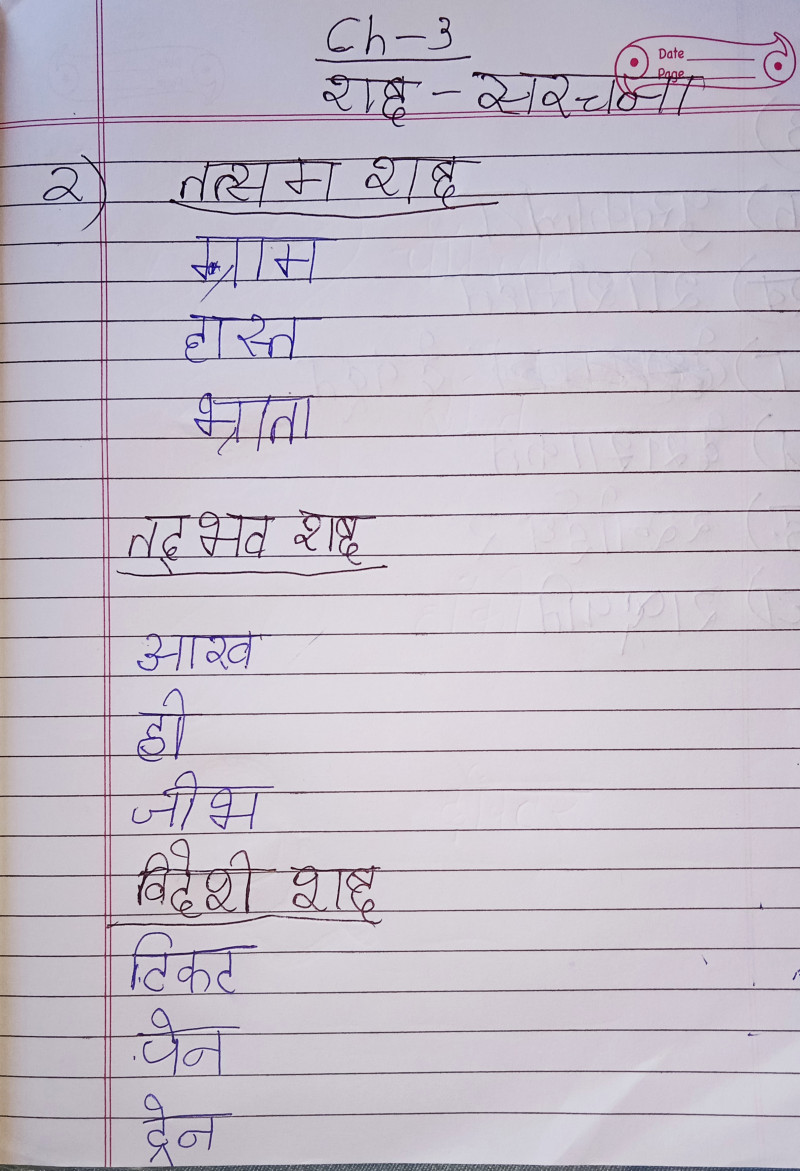 Ch-3
Date
Page
शब्द - सरचना
२) तत्सम शब्द
ग्राम
हास्त
भ्राता
तद्भव शब्द
आख
ही
जीभ
विदेशी शब्द
टिकट
पेन
ट्रेन